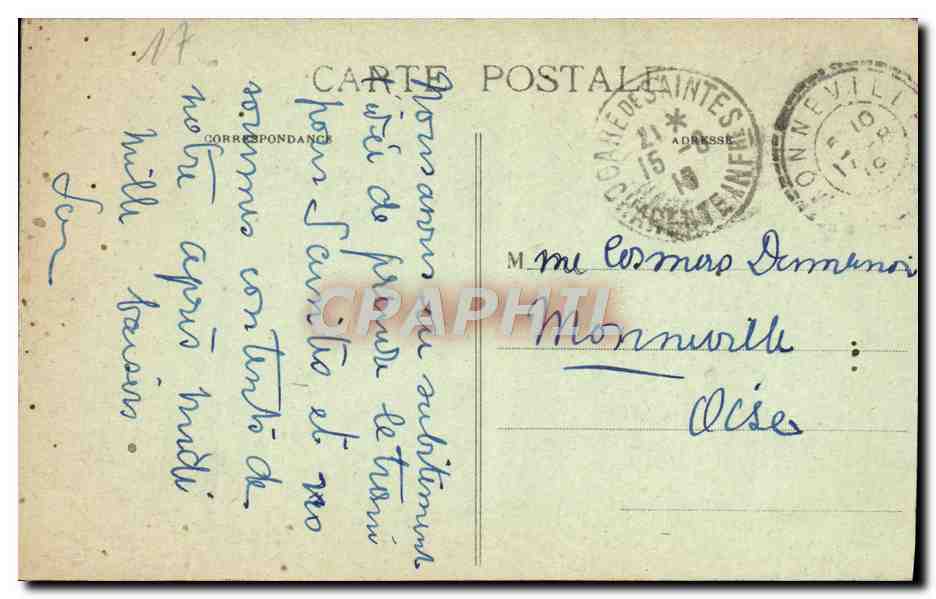 17
CARTE POSTALE
CORRESPONDANCE
ADRESSE
Nous avons eu subitement
l'idée de prendre le train
pour Saintes et no
sommes contents de
notre après midi
Mille baisers
GARE DE SAINTES
21 - 8
15
19
CHARENTE INFRE
MONNEVILLE
10
8
19
M me Cosmero Demanoir
Monneville
Oise
CRAPHIL